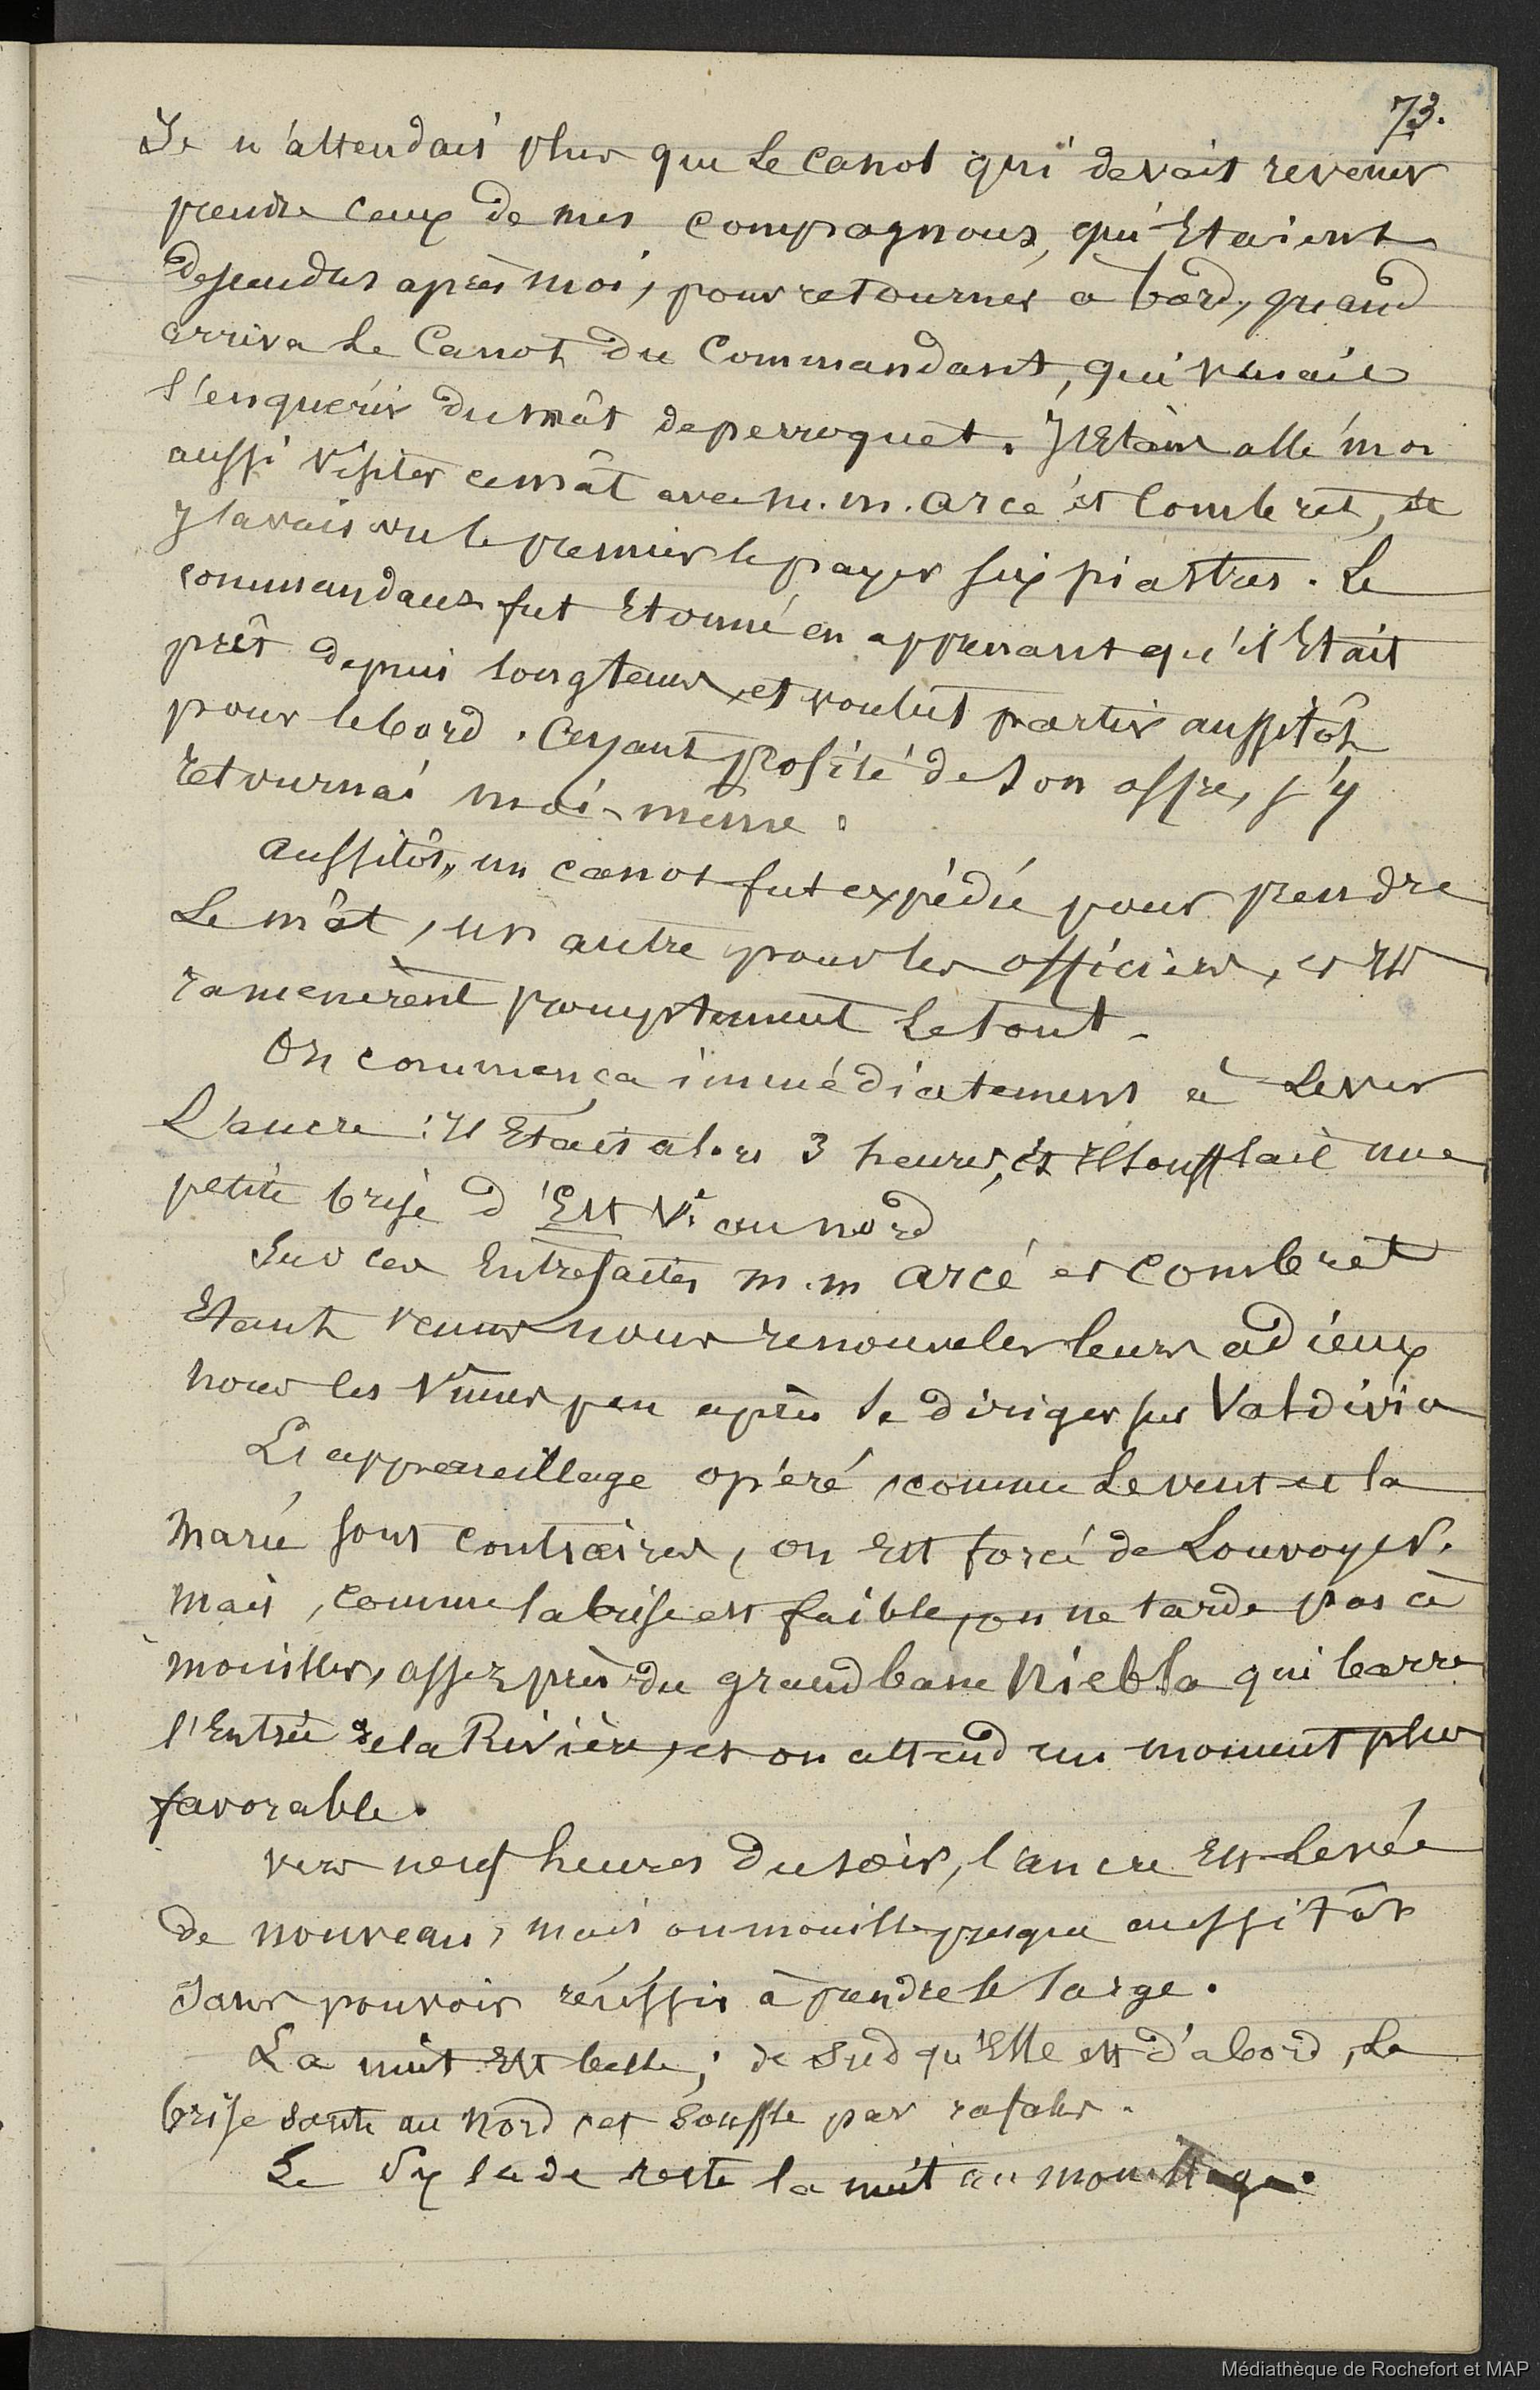 73.
Je n'attendais plus que le canot qui devait revenir
prendre ceux de mes compagnons, qui Etaient
descendus après moi, pour retourner à bord, quand
arriva le Canot du Commandant, qui venait
s'enquérir du mât de perroquet. J'Etais allé moi
aussi visiter ce mât avec m.m. Arcé et Combret, et
j'avais vu le premier le payer six piastres. Le
commandant fut Etonné en apprenant qu'il Etait
prêt depuis longtems, et voulut partir aussitôt
pour le bord. Ayant profité de son offre, j'y
retournai moi-même.
Aussitôt, un canot fut expédié pour prendre
Le mât, un autre pour les officiers, et ils
ramenèrent promptement le tout.
On commença immédiatement à lever
L'ancre : il Etait alors 3 heures, et il soufflait une
petite brise d'Est au nord
Sur ces Entrefaites m.m Arcé et Combret
Etant venus nous renouveler leurs adieux
nous les vîmes peu après se diriger sur Valdivia
L'appareillage opéré, comme le vent et la
marée sont contraires, on est forcé de Louvoyer.
mais, comme la brise est faible, on ne tarde pas à
mouiller, assez près du grand banc Niebla qui barre
l'Entrée de la Rivière, et on attend un moment plus
favorable.
vers neuf heures du soir, l'ancre Est levée
de nouveau, mais on mouille presque aussitôt
sans pouvoir réussir à prendre le large.
La nuit Est belle ; de Sud qu'Elle est d'abord, la
brise saute au Nord et souffle par rafales.
Le Sylade reste la nuit au mouillage.
Médiathèque de Rochefort et MAP